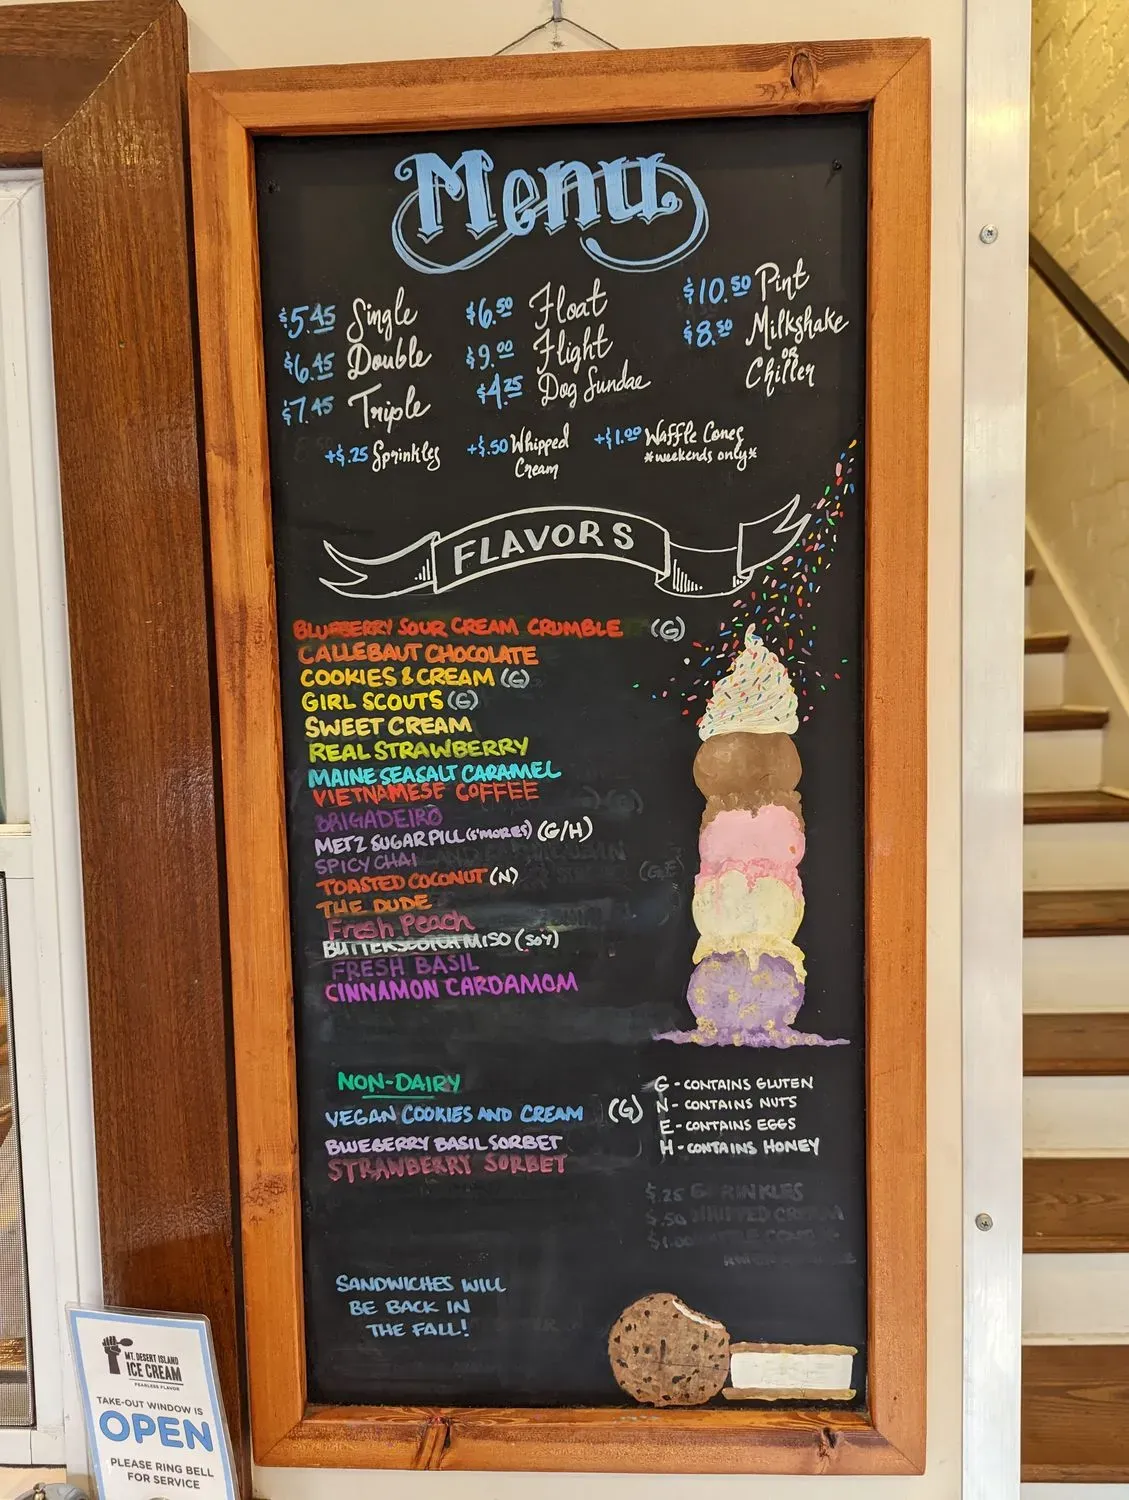 Menu
$5.45 Single
$6.45 Double
$7.45 Triple
$6.50 Float
$9.00 Flight
$4.25 Dog Sundae
$10.50 Pint
$8.50 Milkshake
OR
Chiller
+$.25 Sprinkles
+$.50 Whipped
Cream
+$1.00 Waffle Cones
*weekends only*
FLAVORS
BLUEBERRY SOUR CREAM CRUMBLE (G)
CALLEBAUT CHOCOLATE
COOKIES & CREAM (G)
GIRL SCOUTS (G)
SWEET CREAM
REAL STRAWBERRY
MAINE SEASALT CARAMEL
VIETNAMESE COFFEE
BRIGADEIRO
METZ SUGAR PILL (S'MORES) (G/H)
SPICY CHAI
TOASTED COCONUT (N)
THE DUDE
Fresh Peach
BUTTERSCOTCH MISO (SOY)
FRESH BASIL
CINNAMON CARDAMOM
NON-DAIRY
VEGAN COOKIES AND CREAM (G)
BLUEBERRY BASIL SORBET
STRAWBERRY SORBET
G - CONTAINS GLUTEN
N - CONTAINS NUTS
E - CONTAINS EGGS
H - CONTAINS HONEY
$.25 SPRINKLES
$.50 WHIPPED CREAM
$1.00
SANDWICHES WILL
BE BACK IN
THE FALL!
MT. DESERT ISLAND
ICE CREAM
FEARLESS FLAVOR
TAKE-OUT WINDOW IS
OPEN
PLEASE RING BELL
FOR SERVICE